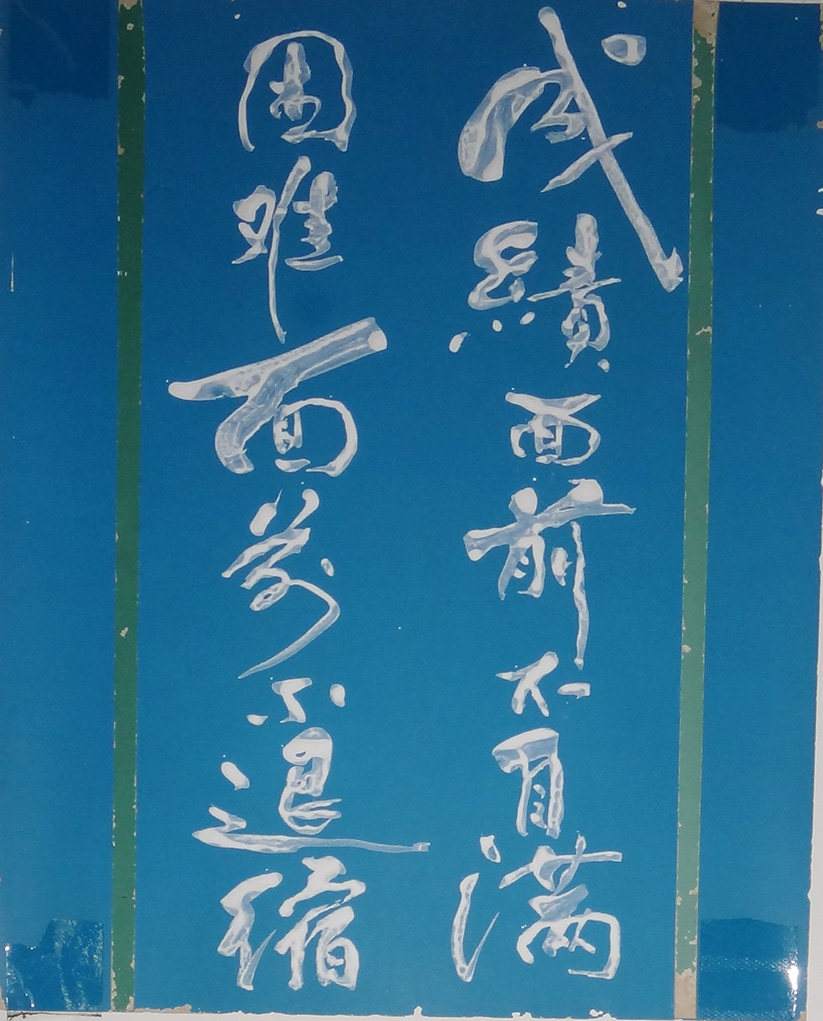 成績面前不自滿
困难面前不退缩